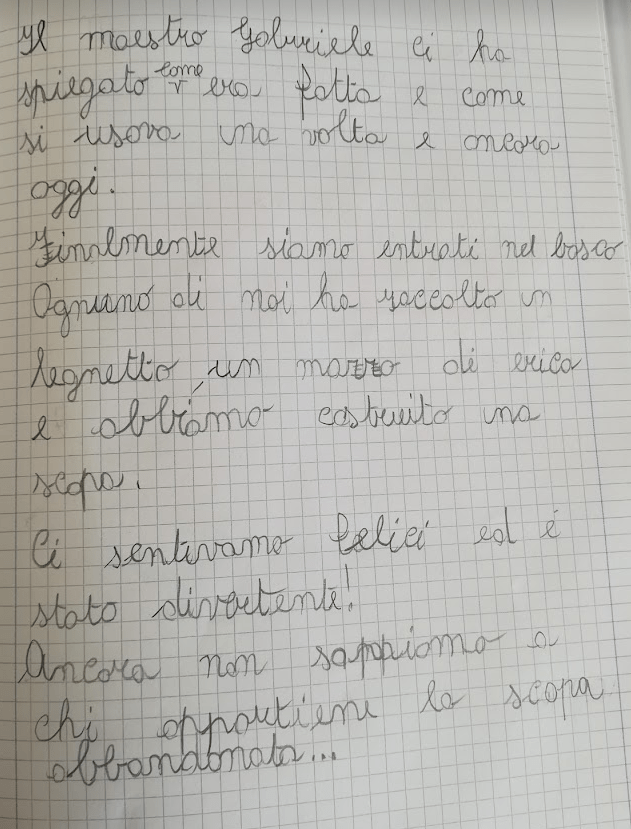 Il maestro Gabriele ci ha
spiegato come era fatta e come
si usava una volta e ancora
oggi.
Finalmente siamo entrati nel bosco
Ognuno di noi ha raccolto un
legnetto, un mazzo di erica
e abbiamo costruito una
scopa.
Ci sentivamo felici ed è
stato divertente!
Ancora non sappiamo a
chi appartiene la scopa
abbandonata...